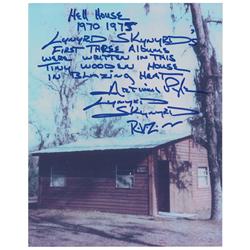 Hell House
1970 1975
Lynyrd Skynyrd's
First Three Albums
were written in this
Tiny wooden House
in Blazing Heat
Artimus Pyle
Lynyrd
Skynyrd